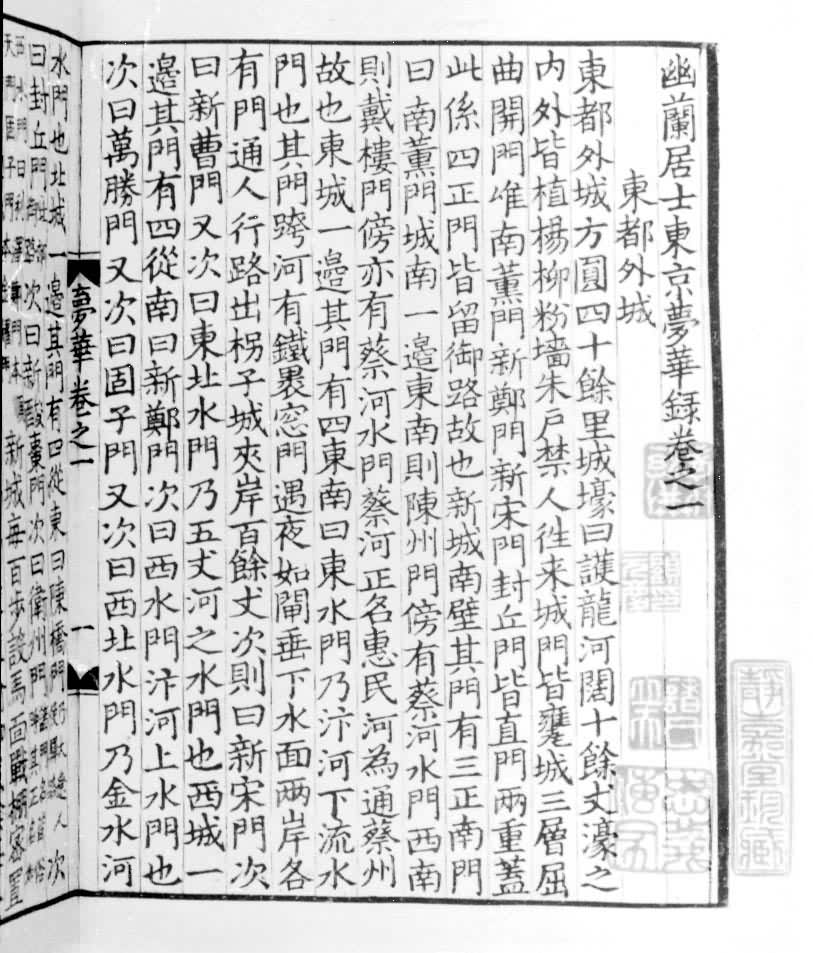 幽蘭居士東京夢華録卷之一
東都外城
東都外城方圓四十餘里城壕曰護龍河闊十餘丈濠之
内外皆植楊柳粉墻朱戸禁人徃来城門皆甕城三層屈
曲開門唯南薫門新鄭門新宋門封丘門皆直門兩重蓋
此係四正門皆留御路故也新城南壁其門有三正南門
曰南薫門城南一邉東南則陳州門傍有蔡河水門西南
則戴樓門傍亦有蔡河水門蔡河正名惠民河為通蔡州
故也東城一邉其門有四東南曰東水門乃汴河下流水
門也其門跨河有鐵褁窓門遇夜如閘垂下水面兩岸各
有門通人行路出柺子城夾岸百餘丈次則曰新宋門次
曰新曹門又次曰東北水門乃五丈河之水門也西城一
邉其門有四從南曰新鄭門次曰西水門汴河上水門也
次曰萬勝門又次曰固子門又次曰西北水門乃金水河
夢華卷之一
一
水門也北城一邉其門有四從東曰陳橋門
次曰封丘門
次曰新酸棗門次曰衛州門
新城每百步設馬面戰棚密置
静嘉堂秘藏